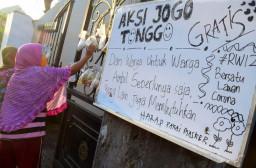 AKSI JOGO
TONGGO
GRATIS
Dari Warga Untuk Warga
Ambil Seperlunya Saja
Yang Lain Juga Membutuhkan
HARAP PAKAI MASKER
#RW12
Bersatu
Lawan
Corona